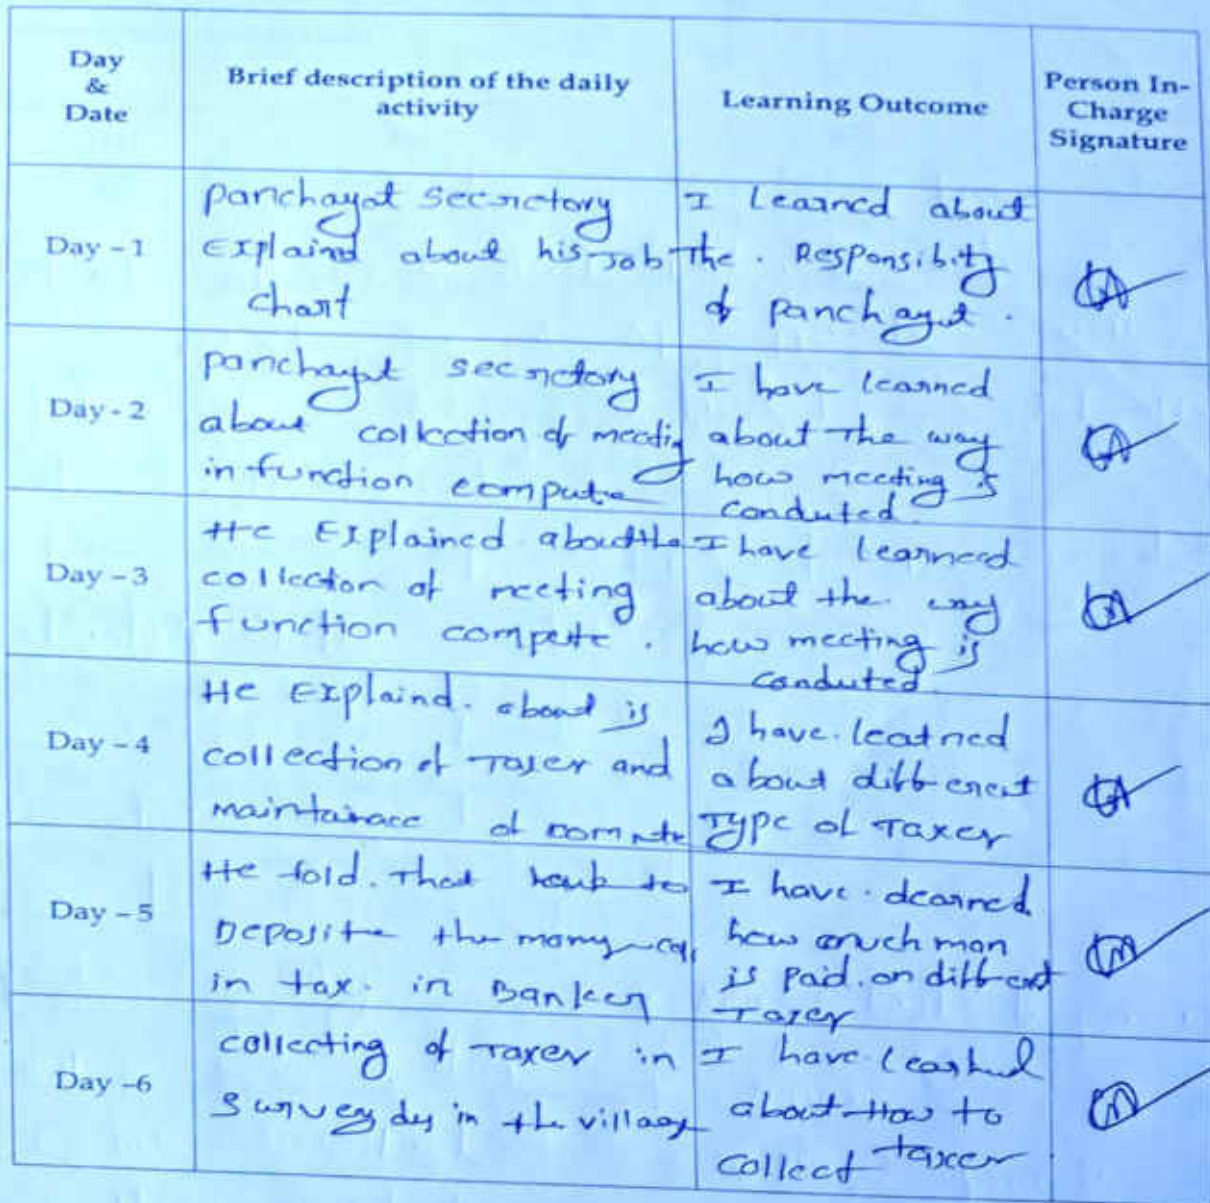 Day
&
Date
Brief description of the daily
activity
Learning Outcome
Person In-
Charge
Signature
Day - 1
panchayat secrctory
Explaind about his Job
chart
I Learned about
The . Responsibity
of panchayat .
Day - 2
panchayat secrctory
about collection of meetig
in function compute
I have learned
about The way
how meeting is
conduted.
Day - 3
He Explained about the
collection of meeting
function compute .
I have learnerd
about the way
how meeting is
conduted
Day - 4
He Explaind. about is
collection of Taxes and
maintainace of
I have. learned
about different
Type of Taxes
Day - 5
He told. That to
Deposite the
in tax. in
I have. dearned
how much mon
is paid. on different
Taxes
Day -6
collecting of Taxes in
in the village
I have
about How to
collect taxes